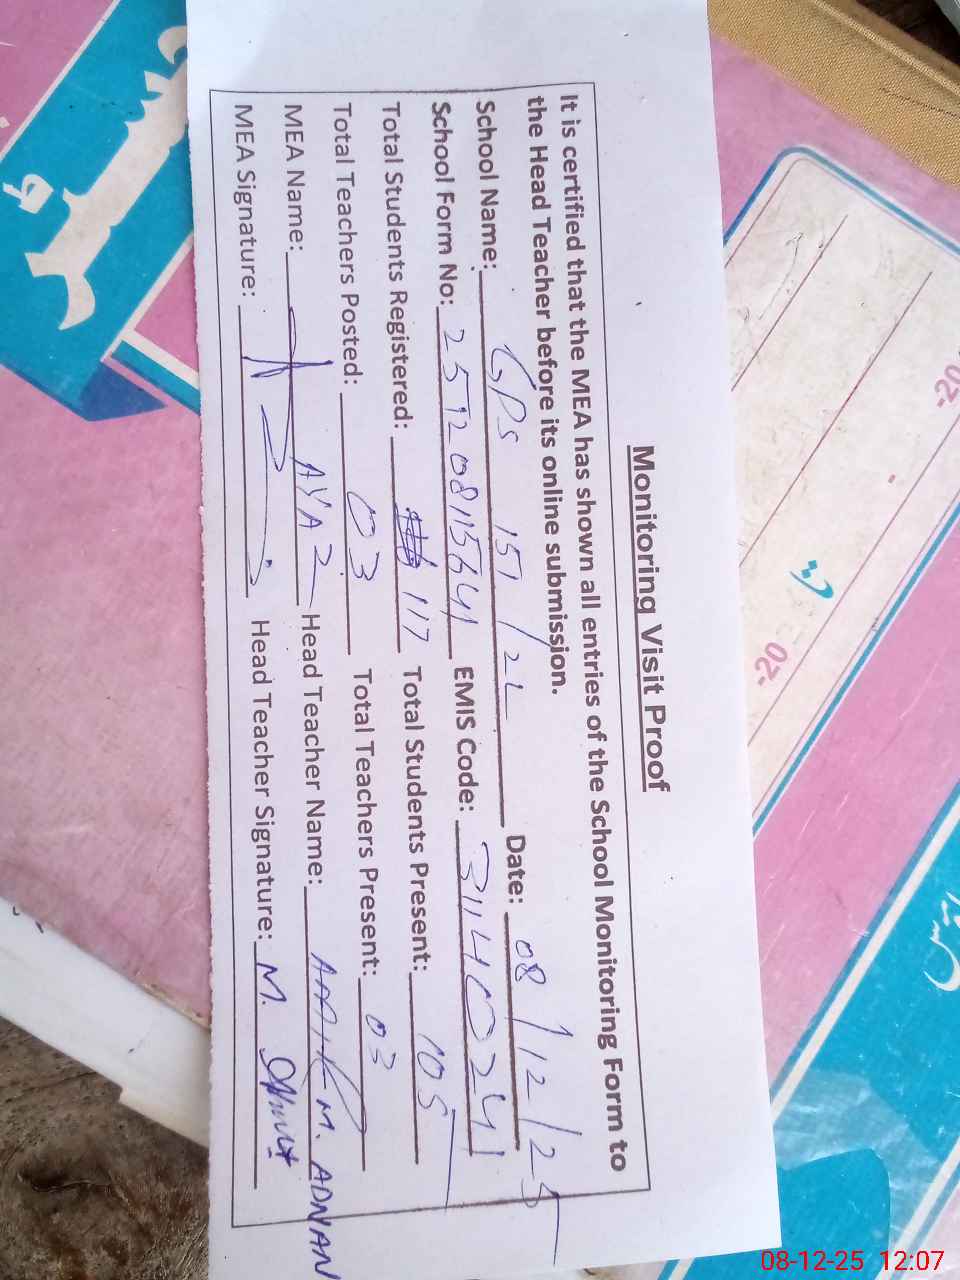 Monitoring Visit Proof
It is certified that the MEA has shown all entries of the School Monitoring Form to
the Head Teacher before its online submission.
School Name: GPS 151/2L Date: 08/12/25
School Form No: EMIS Code: 31140241
Total Students Registered: 117 Total Students Present: 105
Total Teachers Posted: 03 Total Teachers Present: 03
MEA Name: Head Teacher Name: M. ADNAN
MEA Signature: Head Teacher Signature: M.
-20
-20
08-12-25 12:07